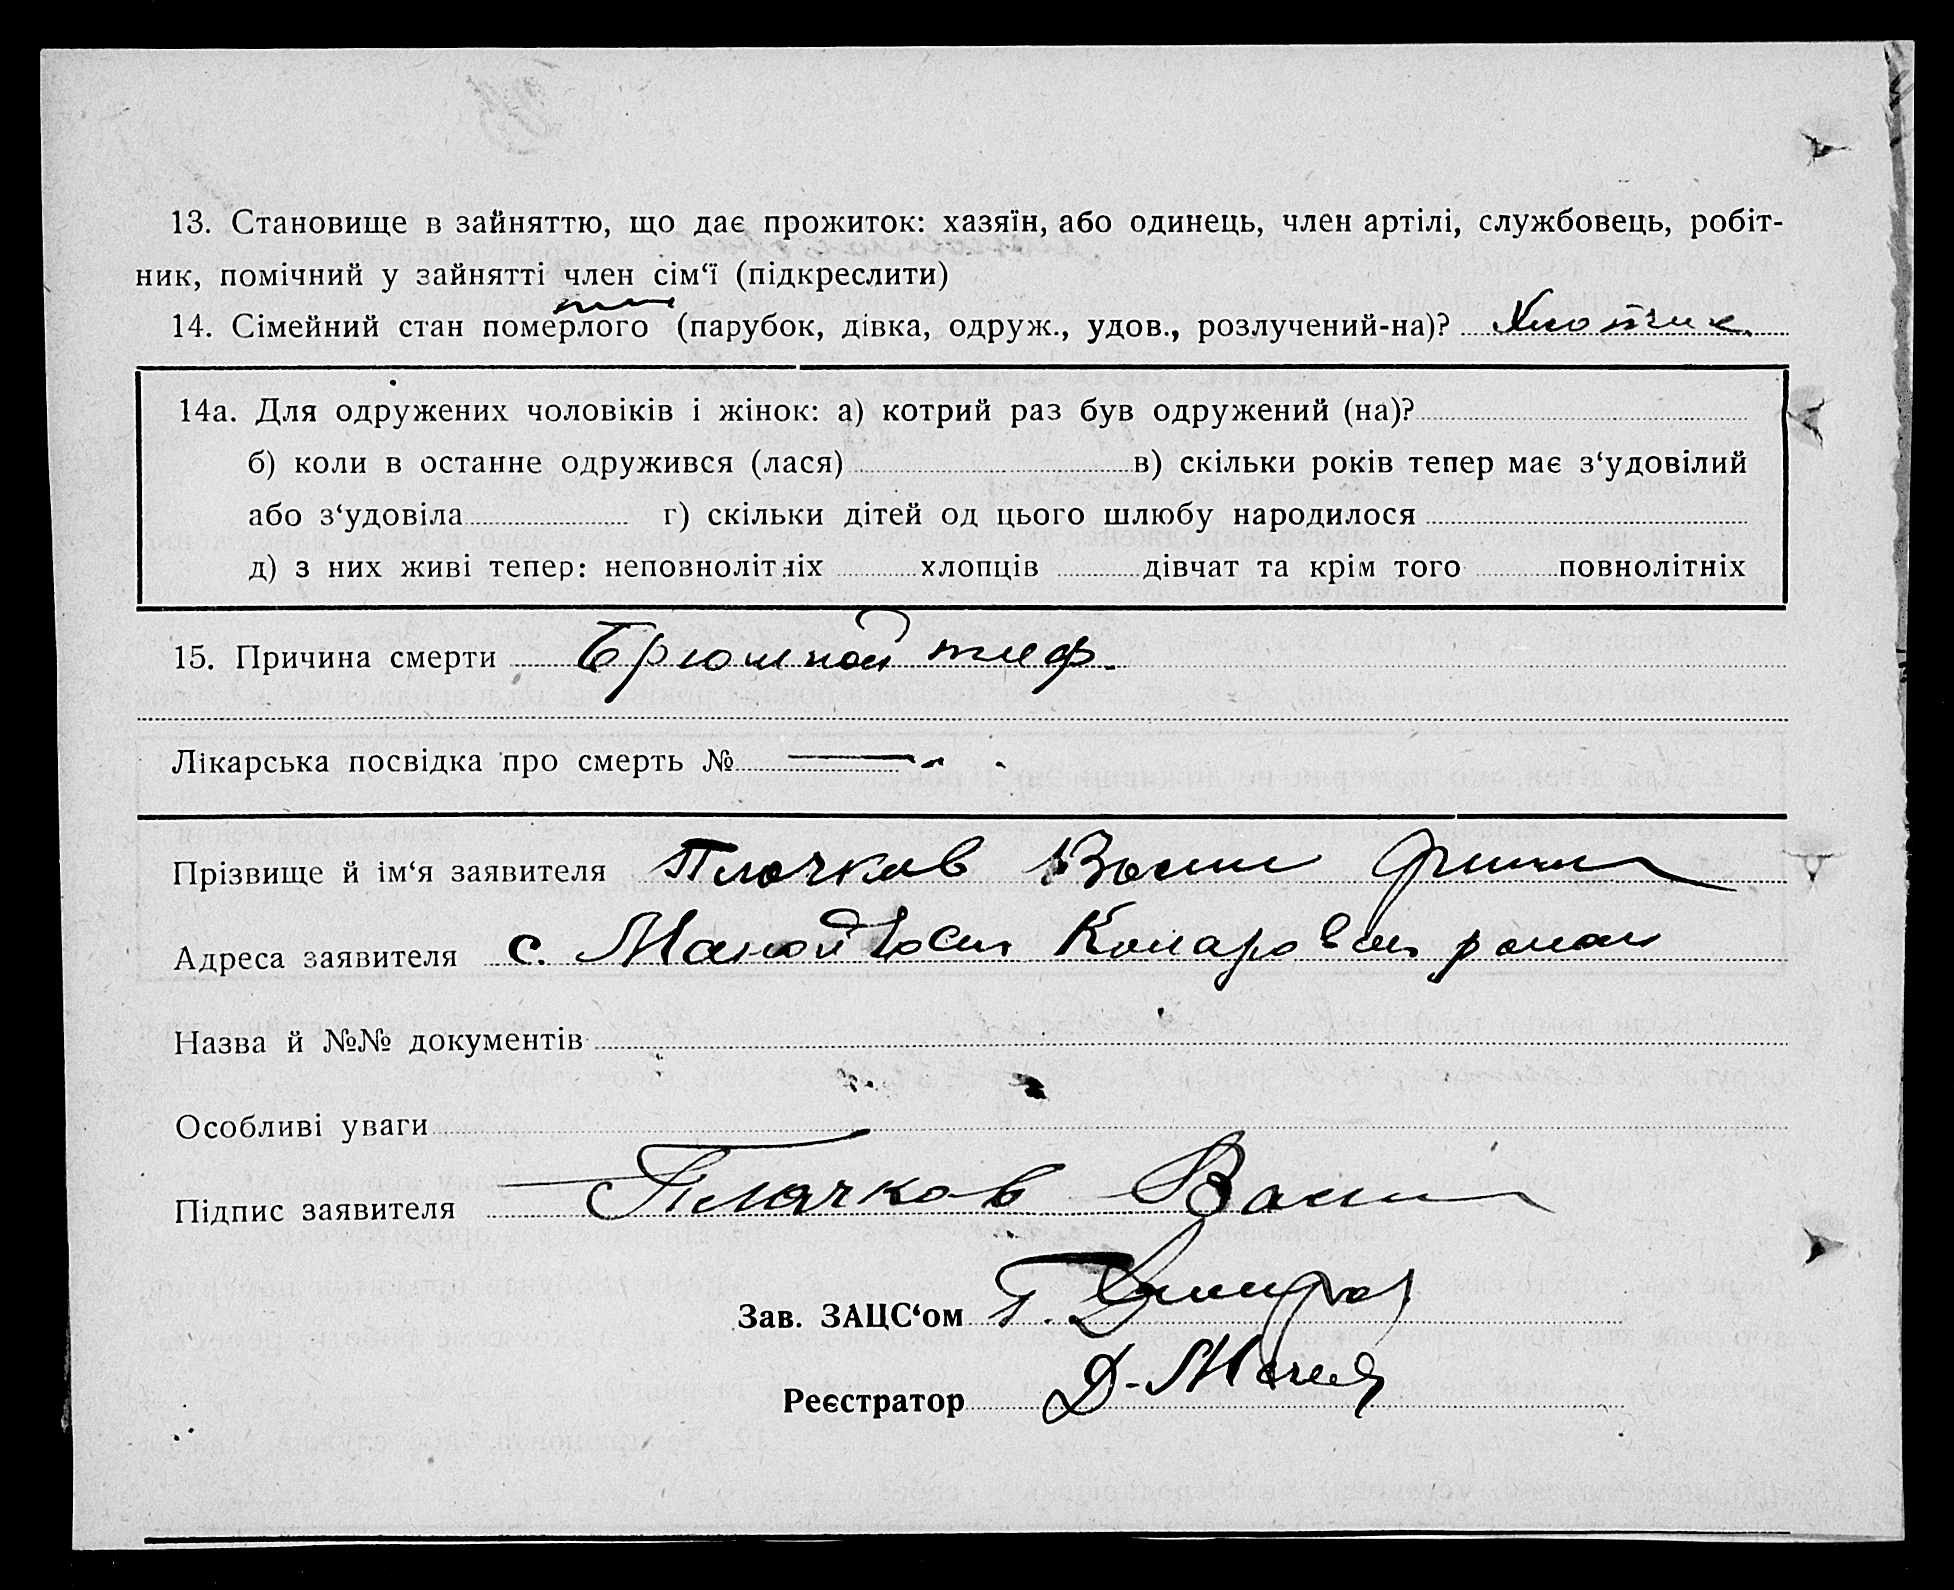 13. Становище в зайняттю, що дає прожиток: хазяїн, або одинець, член артілі, службовець, робіт-
ник, помічний у зайнятті член сім‘ї (підкреслити)
14. Сімейний стан померлого (парубок, дівка, одруж., удов., розлучений-на)? Хлопчик
14а. Для одружених чоловіків і жінок: а) котрий раз був одружений (на)?
б) коли в останнє одружився (лася) в) скільки років тепер має з‘удовілий
або з‘удовіла г) скільки дітей од цього шлюбу народилося
д) з них живі тепер: неповнолітніх хлопців дівчат та крім того повнолітніх
15. Причина смерти Брюшной тиф.
Лікарська посвідка про смерть №
Прізвище й ім‘я заявителя Плачков
Адреса заявителя с.
Назва й №№ документів
Особливі уваги
Підпис заявителя Плачков
Зав. ЗАЦС‘ом Г.
Реєстратор Д.